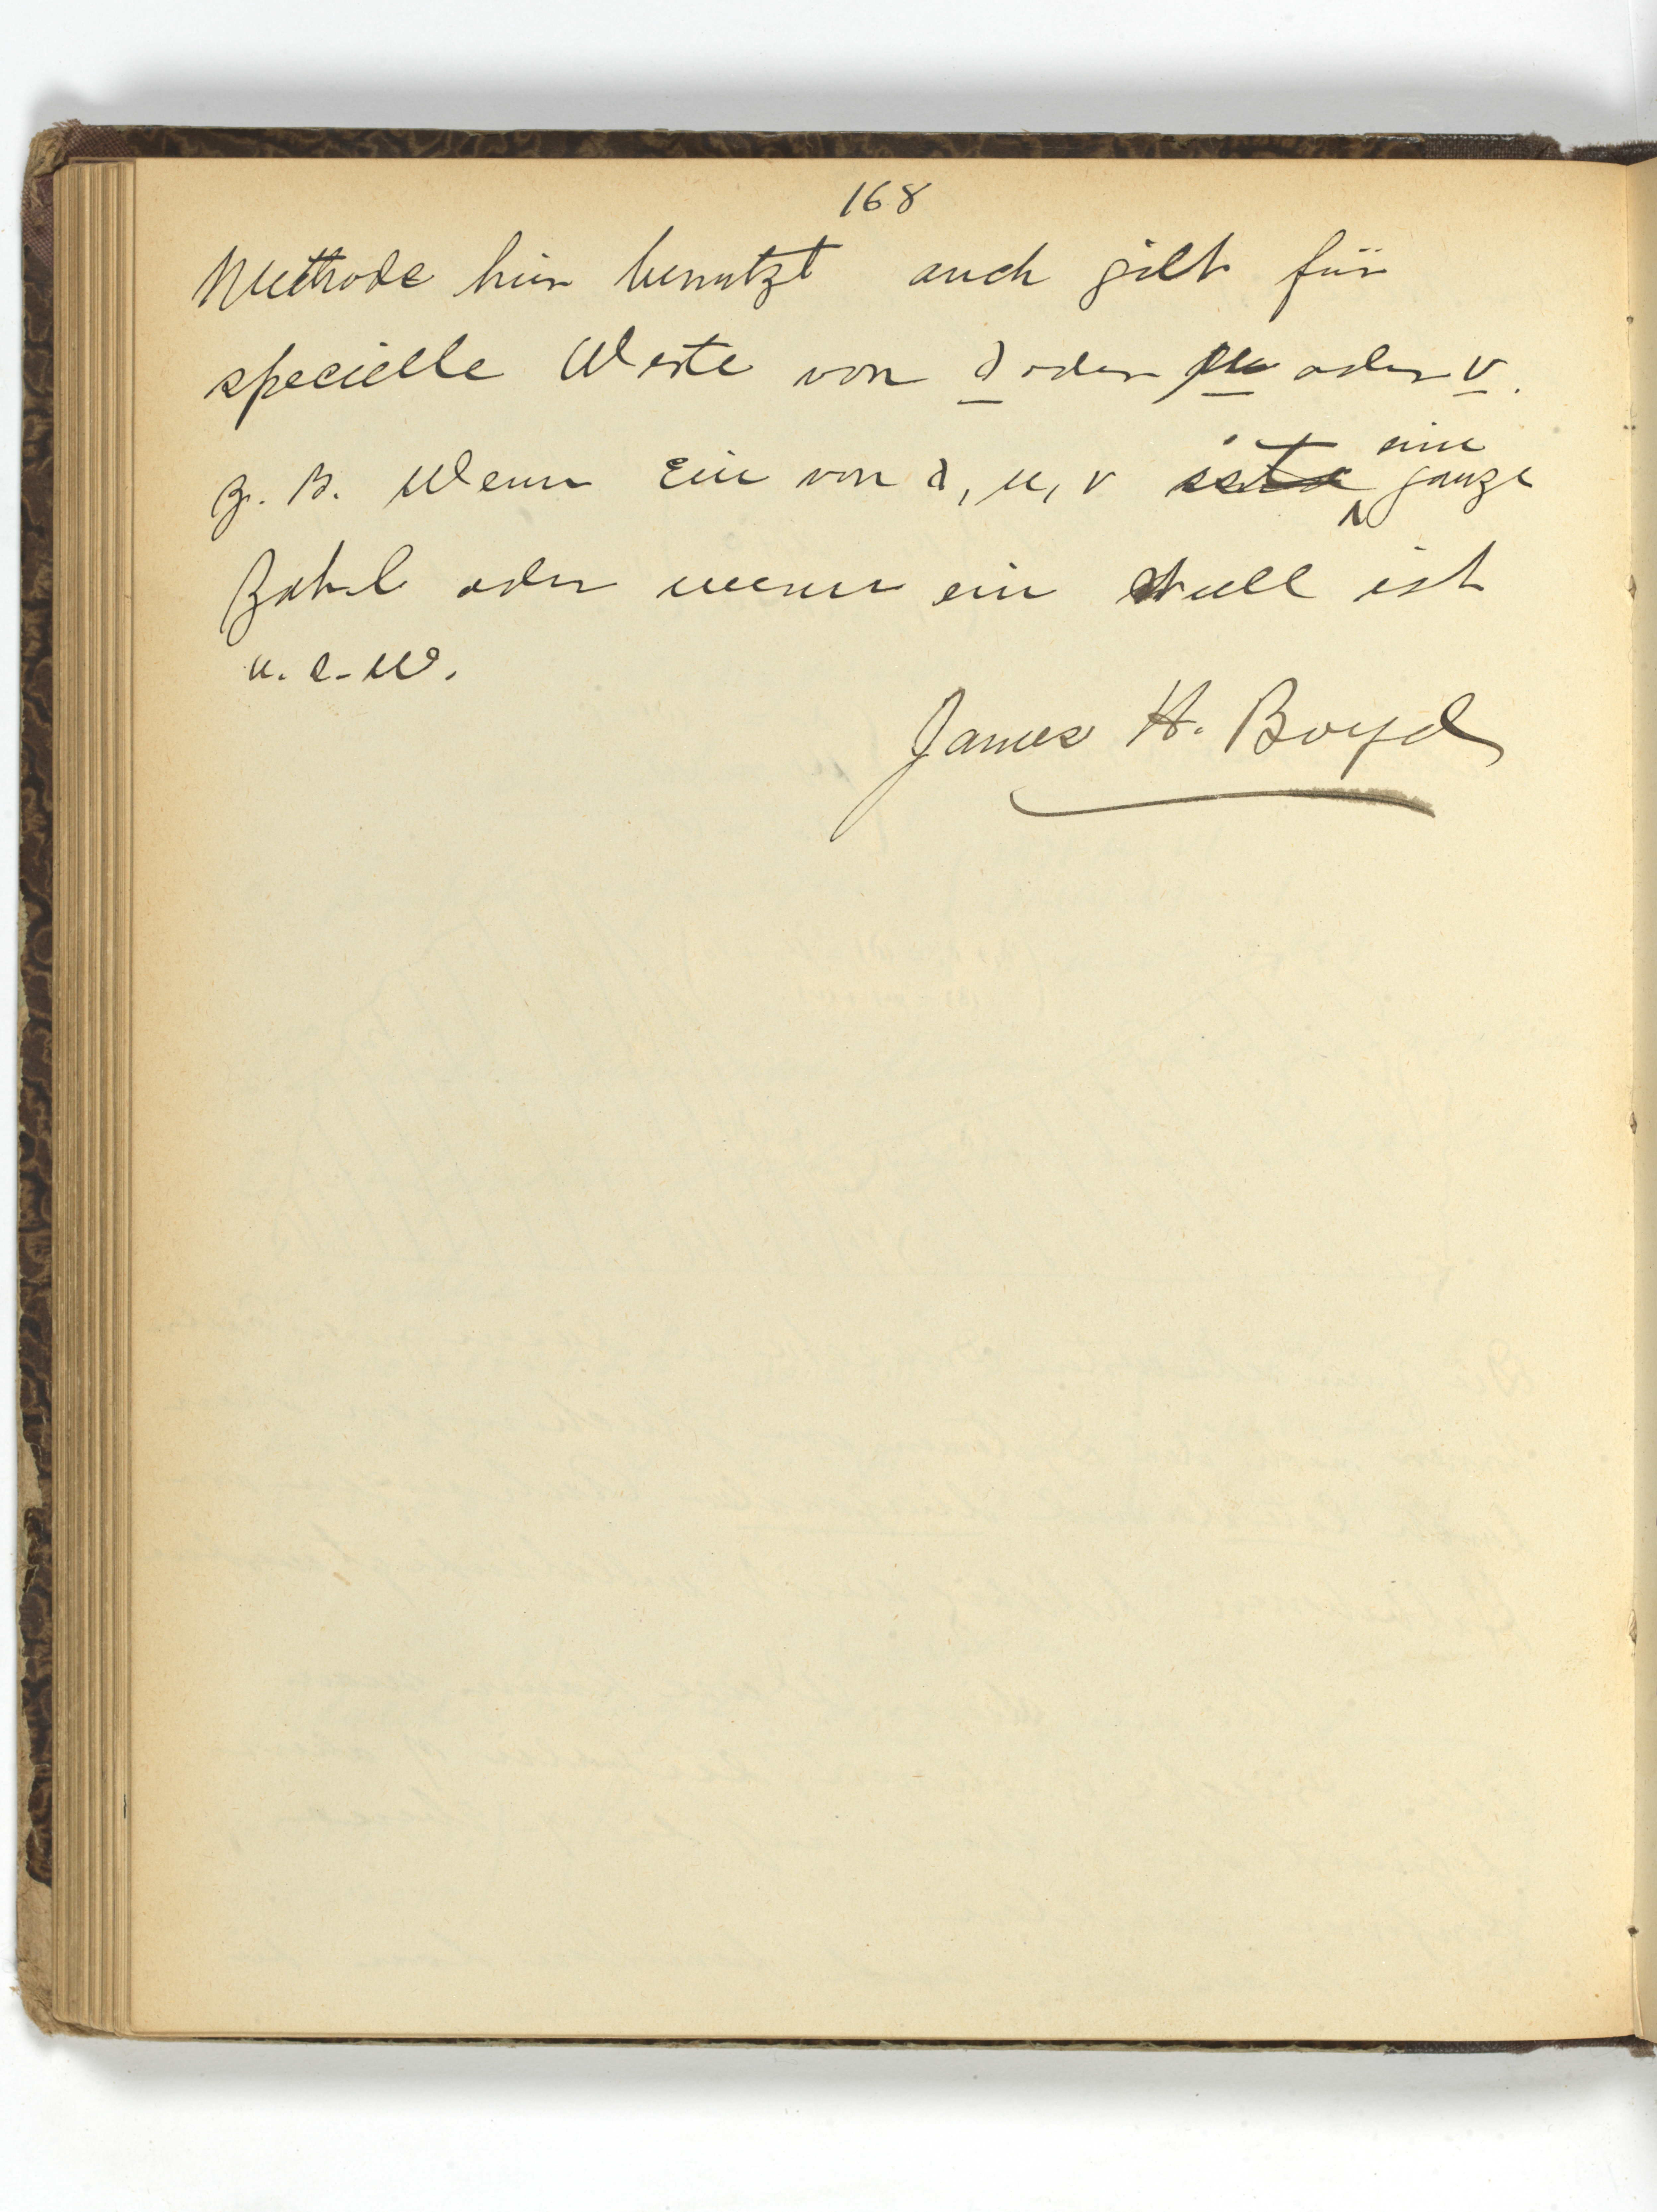 168
Methode hier benutzt auch gilt für
specielle Werte von λ oder μ oder ν.
z. B. Wenn Ein von λ, μ, ν ist eine ganze
Zahl oder wenn ein Null ist
u. s. w.
James H. Boyd